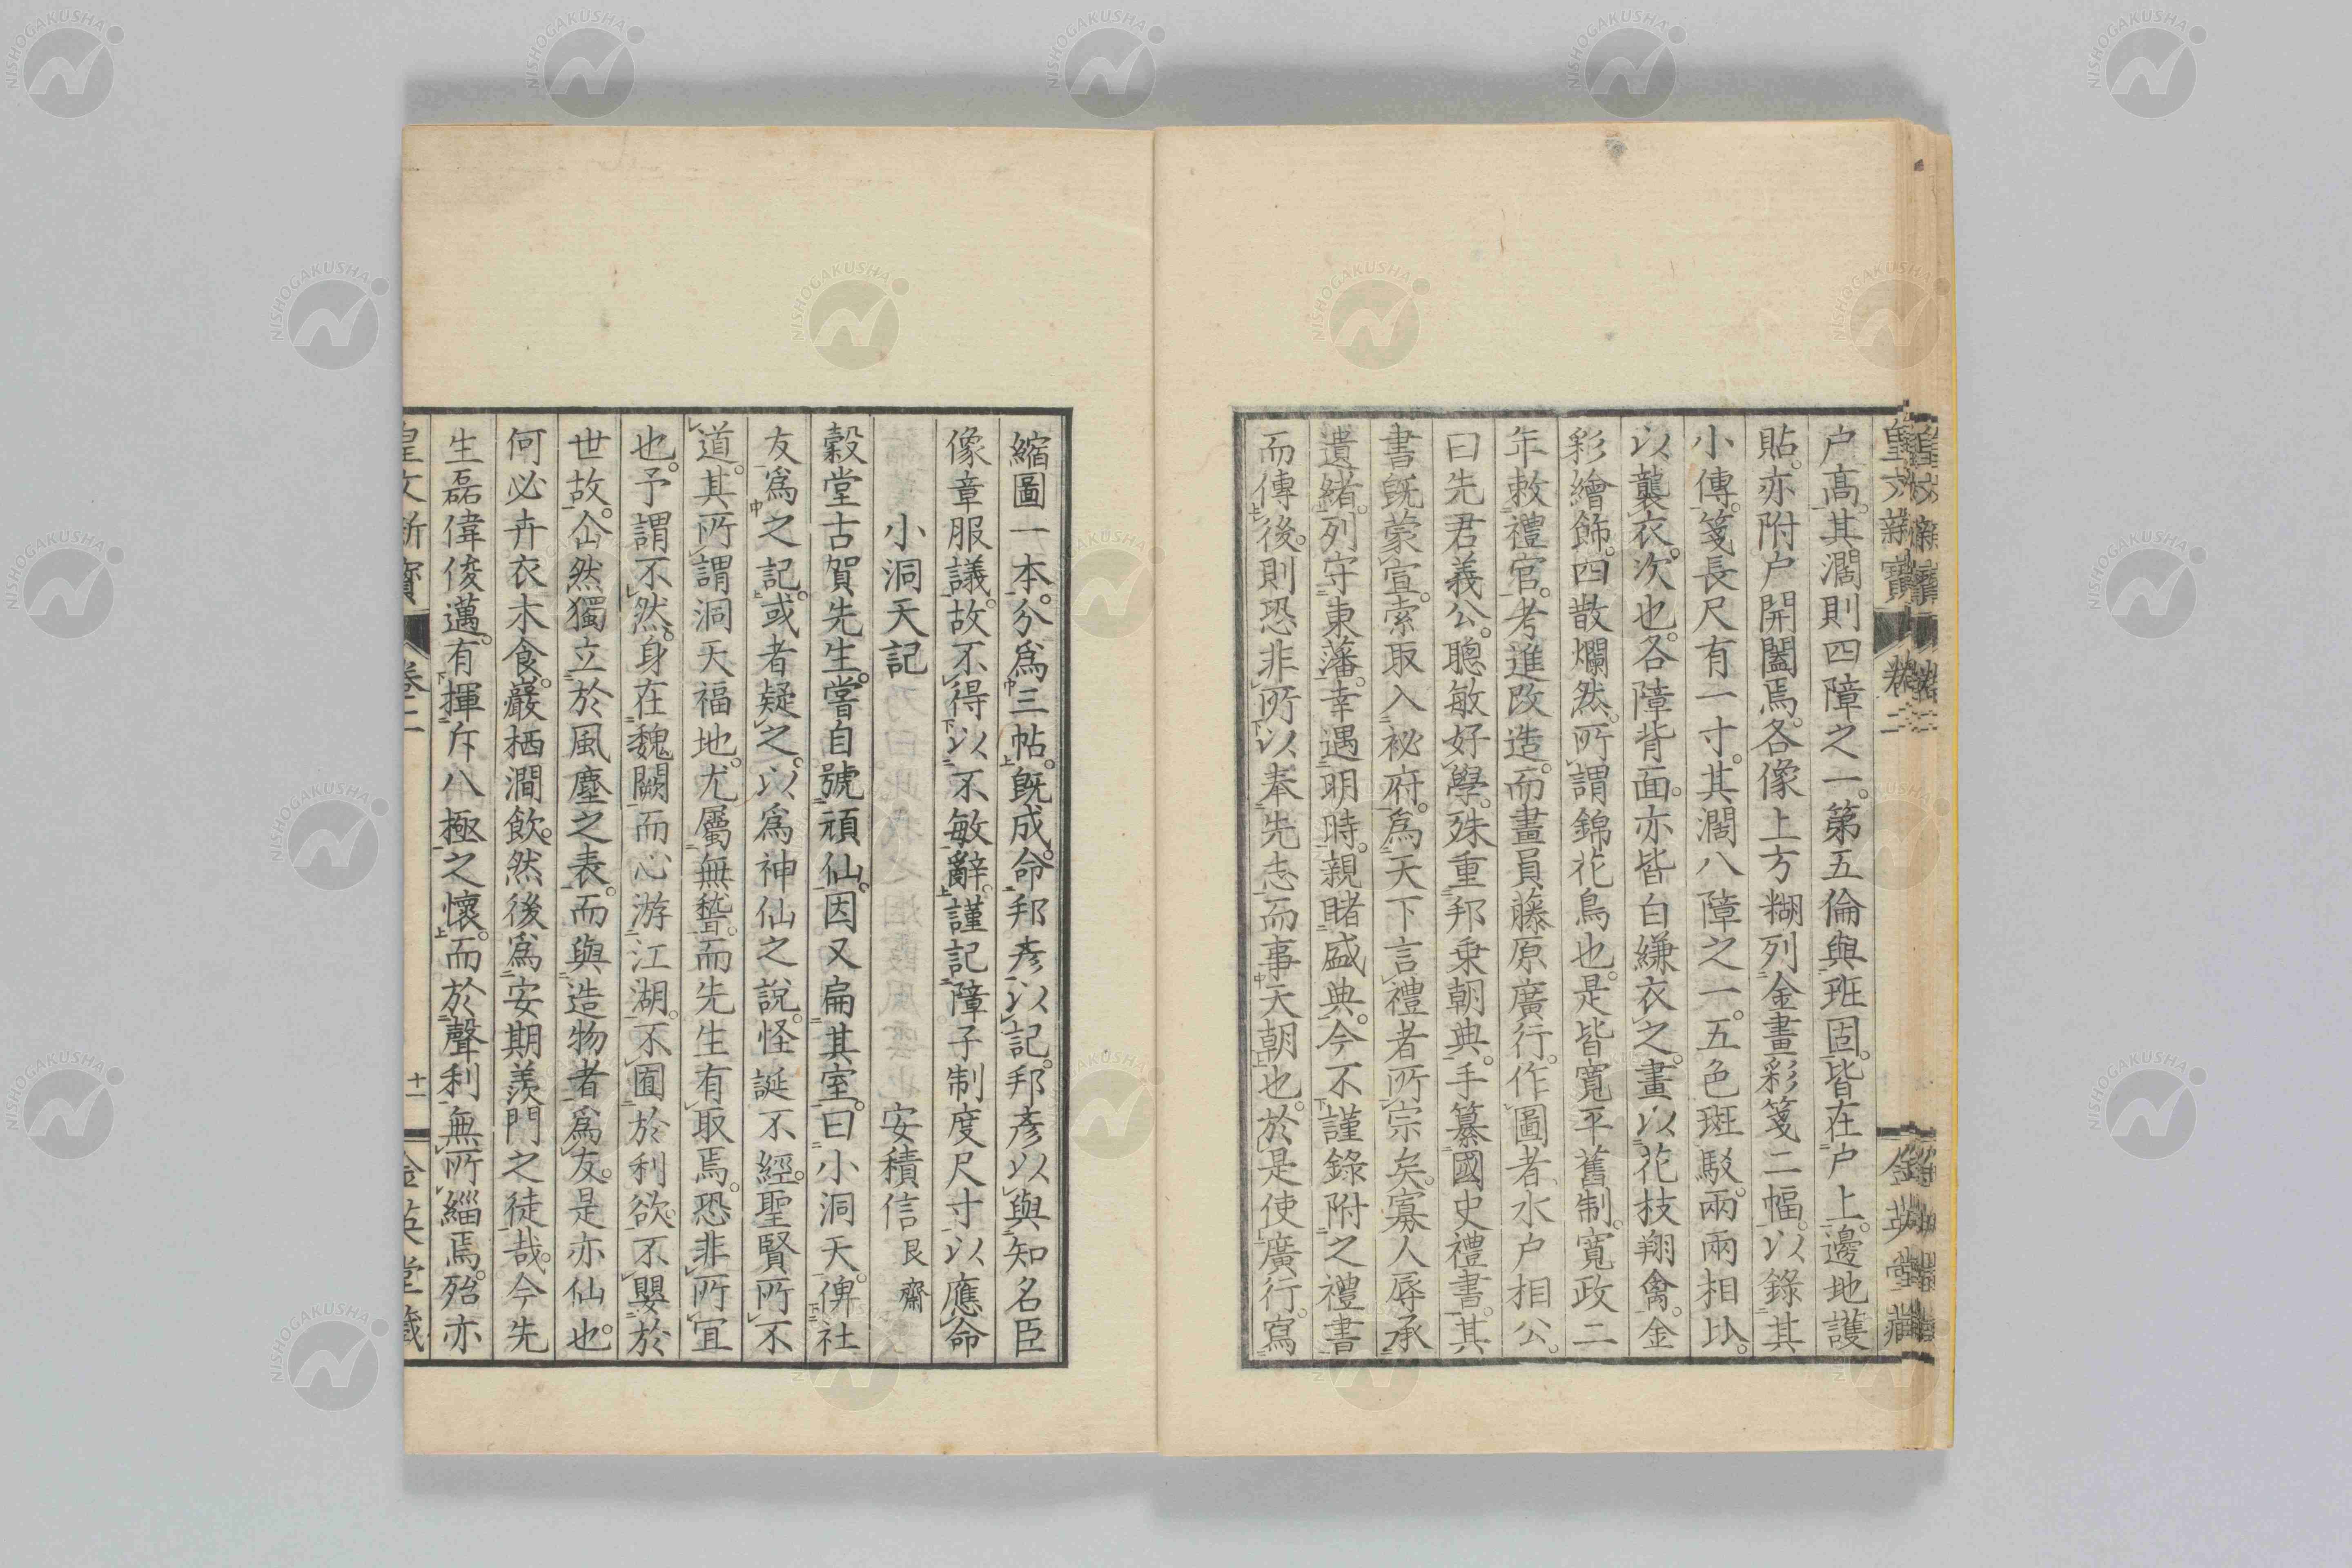 皇文新寶
卷二
金英堂藏
户高。其濶則四障之一。第五倫與班固。皆在户上。邊地護
貼。亦附户開闔焉。各像上方糊列金畫彩箋二幅。以錄其
小傳。箋長尺有一寸。其濶八障之一。五色斑駁。兩兩相比。
以襲衣次也。各障背面。亦皆白縑衣之。畫以花枝翔禽。金
彩繪飾。四散爛然。所謂錦花鳥也。是皆寬平舊制。寬政二
年敕禮官。考進改造。而畫員藤原廣行。作圖者水户相公。
曰先君義公。聰敏好學。殊重邦乗朝典。手纂國史禮書。其
書旣蒙宣索取入祕府。爲天下言禮者所宗矣。寡人辱承
遺緒。列守東藩。幸遇明時。親睹盛典。今不謹錄附之禮書
而傳後。則恐非所以奉先志而事天朝也。於是使廣行。寫
縮圖一本。分爲三帖。旣成。命邦彥以記。邦彥以與知名臣
像章服議。故不得以不敏辭。謹記障子制度尺寸以應命
小洞天記
安積信艮齋
穀堂古賀先生。嘗自號頑仙。因又扁其室。曰小洞天。俾社
友爲之記。或者疑之。以爲神仙之說。怪誕不經。聖賢所不
道。其所謂洞天福地。尤屬無㙯。而先生有取焉。恐非所宜
也。予謂不然。身在魏闕而心游江湖。不囿於利欲。不嬰於
世故。仚然獨立於風塵之表。而與造物者爲友。是亦仙也。
何必卉衣木食。巖栖澗飮。然後爲安期羨門之徒哉。今先
生磊偉俊邁。有揮斥八極之懷。而於聲利無所緇焉。殆亦
皇文新寶
卷二
十一
金英堂藏
NISHOGAKUSHA